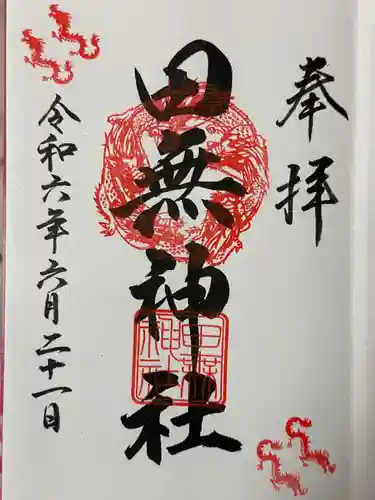 奉拝
田無神社
田無神社
令和六年六月二十一日